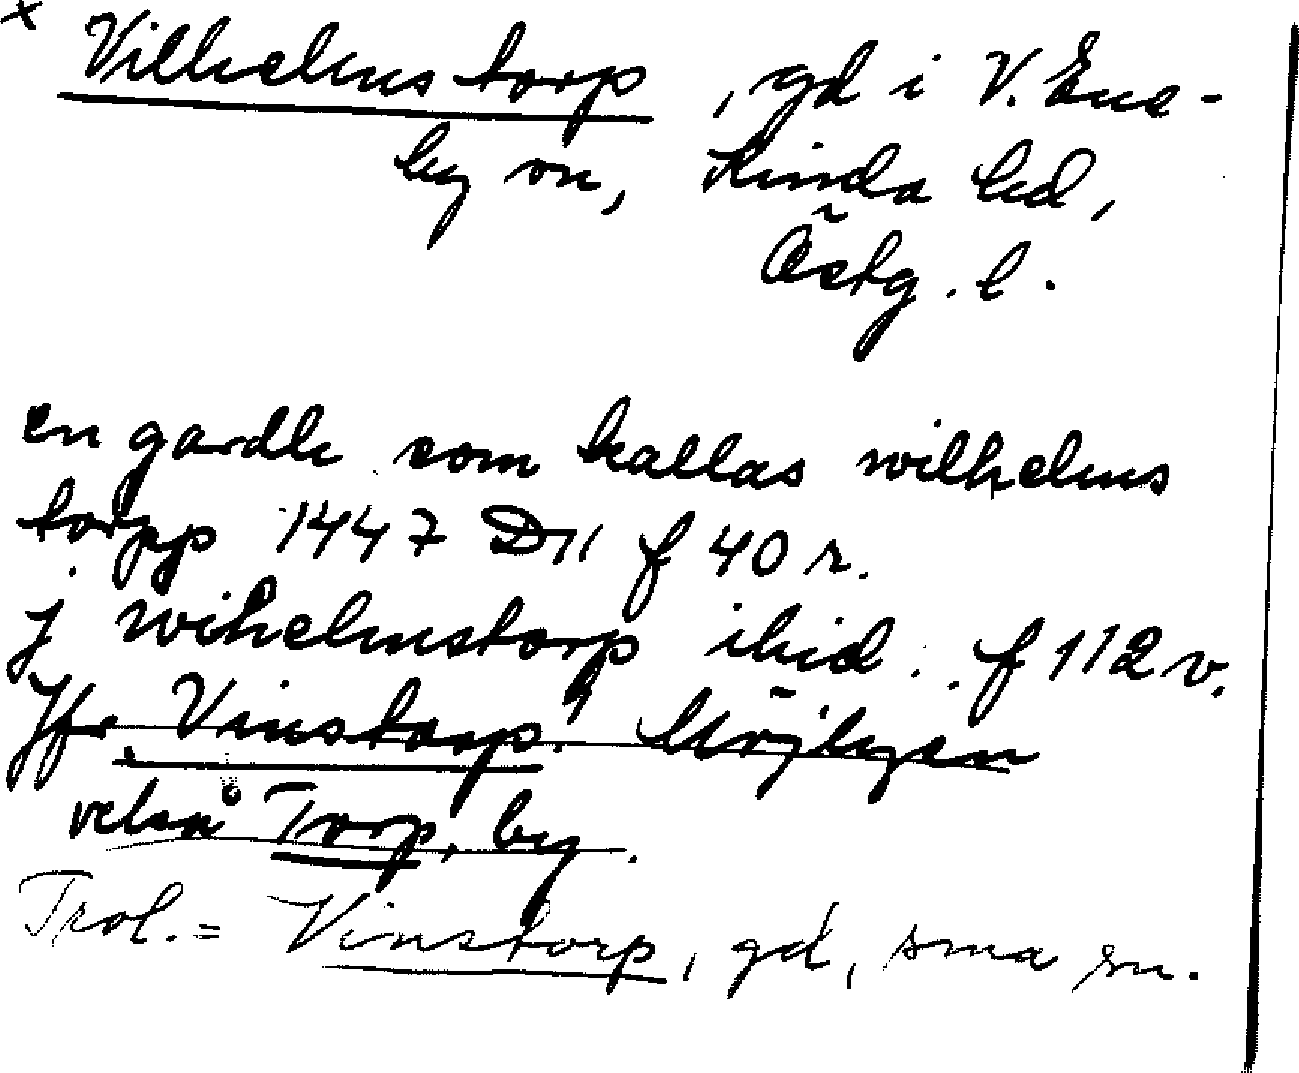 x Vilhelmstorp, gd i V. Ene-
by sn, Kinda hd,
Östg. l.
en gardh som kallas wilhelms
torpp 1447 D11 f 40 r.
j wihelmstorp ibid. f 112 v.
Jfr Vinstorp! Möjligen
Torp, by.
Trol. = Vinstorp, gd, sma sn.